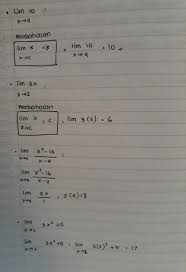 • lim 10 :
x→4
Pembahasan
lim k = k
x→c
= lim 10 = 10
x→4
• lim 3x :
x→2
Pembahasan
lim x = c
x→c
, lim 3(2) = 6
• lim x²-16 =
x→4 x-4
lim x²-16
x→4 x-4
lim 2x
x→4 1
, 2(4)=8
• lim 3x²+5
x→2
lim 3x²+5 = lim 3(2)²+5 = 17
x→2 x→2